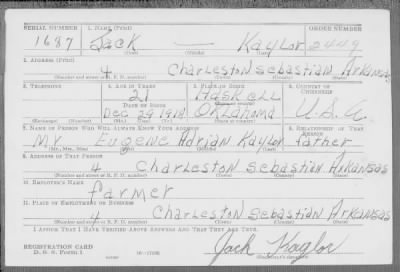 SERIAL NUMBER 1. NAME (Print) ORDER NUMBER
1687 Jack — Kaylor 2449
(First) (Middle) (Last)
2. ADDRESS (Print)
4 Charleston Sebastian Arkansas
(Number and street or R. F. D. number) (Town) (County) (State)
3. TELEPHONE 4. AGE IN YEARS 5. PLACE OF BIRTH 6. COUNTRY OF CITIZENSHIP
21 Haskell
DATE OF BIRTH (Town or county)
Dec 29 1918 Oklahoma U.S.A.
(Exchange) (Number) (Mo.) (Day) (Yr.) (State or country)
7. NAME OF PERSON WHO WILL ALWAYS KNOW YOUR ADDRESS 8. RELATIONSHIP OF THAT PERSON
Mr Eugene Adrian Kaylor father
(Mr., Mrs., Miss) (First) (Middle) (Last)
9. ADDRESS OF THAT PERSON
4 Charleston Sebastian Arkansas
(Number and street or R. F. D. number) (Town) (County) (State)
10. EMPLOYER'S NAME
farmer
11. PLACE OF EMPLOYMENT OR BUSINESS
4 Charleston Sebastian Arkansas
(Number and street or R. F. D. number) (Town) (County) (State)
I AFFIRM THAT I HAVE VERIFIED ABOVE ANSWERS AND THAT THEY ARE TRUE.
REGISTRATION CARD
D. S. S. Form 1 Jack Kaylor
(Registrant's signature)